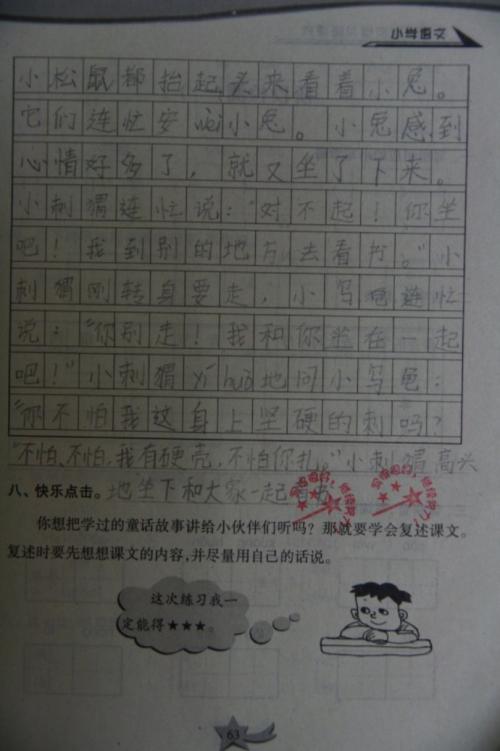 小学语文
小松鼠都抬起头来看着小兔。
它们连忙安wèi小兔。小兔感到
心情好多了，就又坐了下来。
小刺猬连忙说：“对不起！你坐
吧！我到别的地方去看书。”小
刺猬刚转身要走，小乌龟连忙
说：“你别走！我和你坐在一起
吧！”小刺猬yí huò地问小乌龟：
“你不怕我这身上坚硬的刺吗？
“不怕、不怕，我有硬壳，不怕你扎。”小刺猬高兴
地坐下和大家一起看书
八、快乐点击。
你想把学过的童话故事讲给小伙伴们听吗？那就要学会复述课文。
复述时要先想想课文的内容，并尽量用自己的话说。
这次练习我一
定能得★★★。
63